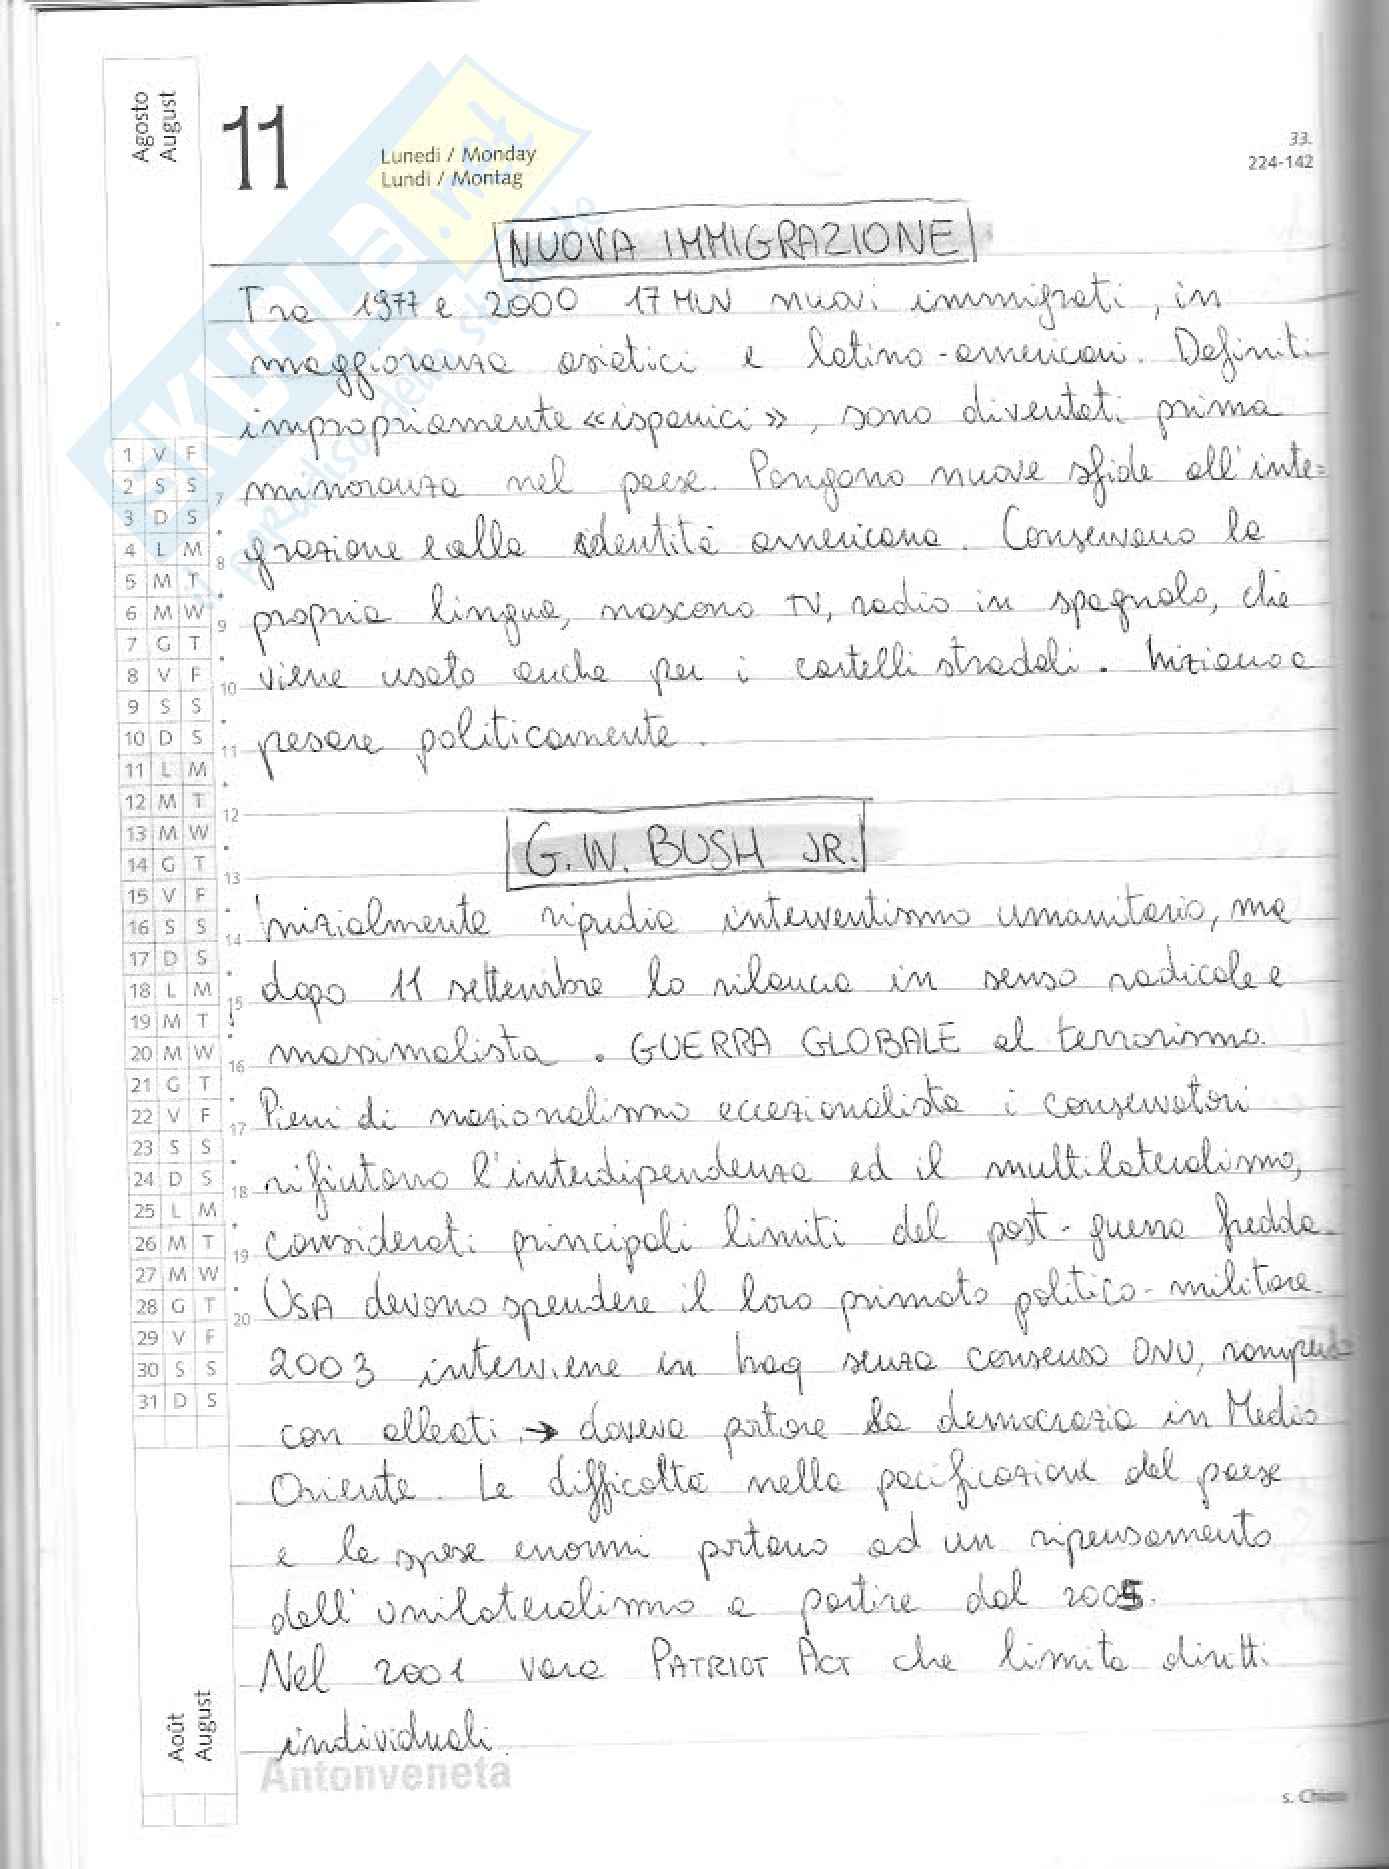 Agosto
August
11
Lunedi / Monday
Lundi / Montag
33.
224-142
SKUOLA.net
il paradiso dello studente
NUOVA IMMIGRAZIONE
Tra 1977 e 2000 17 MLN nuovi immigrati, in
maggioranza asiatici e latino-americani. Definiti
impropriamente «ispanici», sono diventati prima
minoranza nel paese. Pongono nuove sfide all'inte=
grazione e alla identità americana. Conservano la
propria lingua, nascono TV, radio in spagnolo, che
viene usato anche per i cartelli stradali. Iniziano a
pesare politicamente.
G. W. BUSH JR.
Inizialmente ripudia interventismo umanitario, ma
dopo 11 settembre lo rilancia in senso radicale e
massimalista. GUERRA GLOBALE al terrorismo.
Pieni di nazionalismo eccezionalista i conservatori
rifiutano l'interdipendenza ed il multilateralismo,
considerati principali limiti del post-guerra fredda.
USA devono spendere il loro primato politico-militare.
2003 interviene in Iraq senza consenso ONU, rompendo
con alleati → doveva portare la democrazia in Medio
Oriente. Le difficoltà nella pacificazione del paese
e le spese enormi portano ad un ripensamento
dell'unilateralismo a partire dal 2005.
Nel 2001 vara PATRIOT ACT che limita diritti
individuali.
1 V F
2 S S
3 D S
4 L M
5 M T
6 M W
7 G T
8 V F
9 S S
10 D S
11 L M
12 M T
13 M W
14 G T
15 V F
16 S S
17 D S
18 L M
19 M T
20 M W
21 G T
22 V F
23 S S
24 D S
25 L M
26 M T
27 M W
28 G T
29 V F
30 S S
31 D S
7
8
9
10
11
12
13
14
15
16
17
18
19
20
Août
August
Antonveneta
s. Chiara